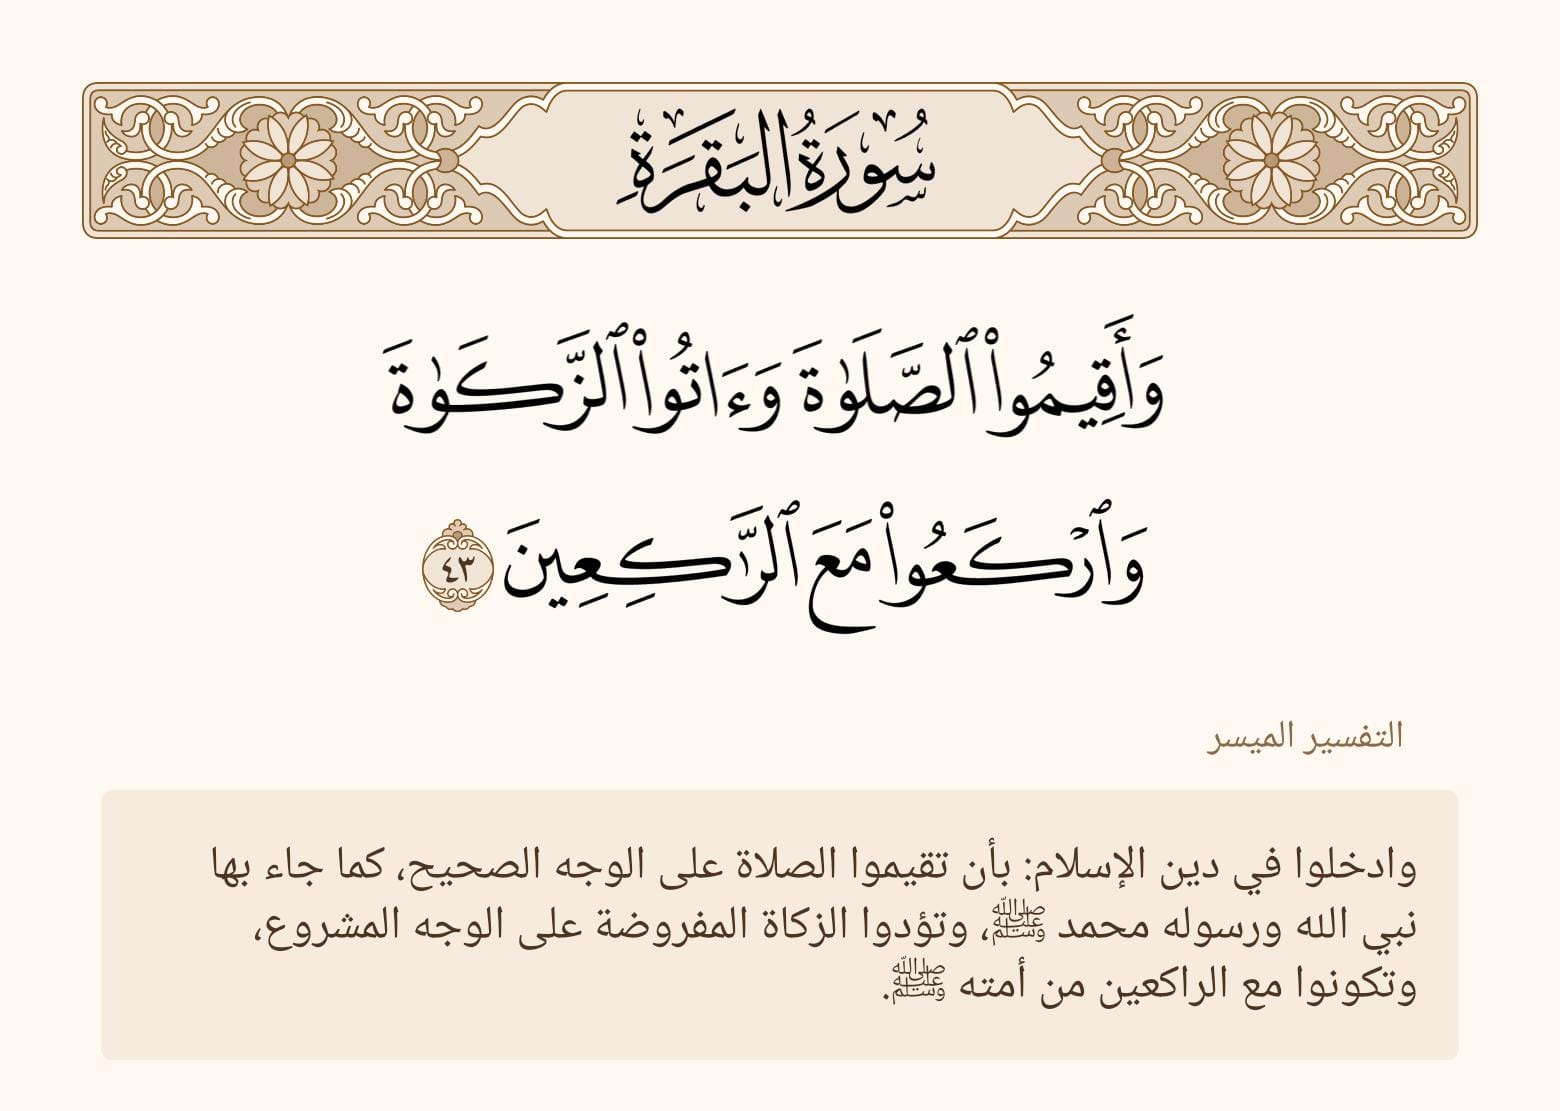 سُورَةُ البَقَرَةِ
وَأَقِيمُوا۟ ٱلصَّلَوٰةَ وَءَاتُوا۟ ٱلزَّكَوٰةَ
وَٱرْكَعُوا۟ مَعَ ٱلرَّٰكِعِينَ ٤٣
التفسير الميسر
وادخلوا في دين الإسلام: بأن تقيموا الصلاة على الوجه الصحيح، كما جاء بها
نبي الله ورسوله محمد ﷺ، وتؤدوا الزكاة المفروضة على الوجه المشروع،
وتكونوا مع الراكعين من أمته ﷺ.